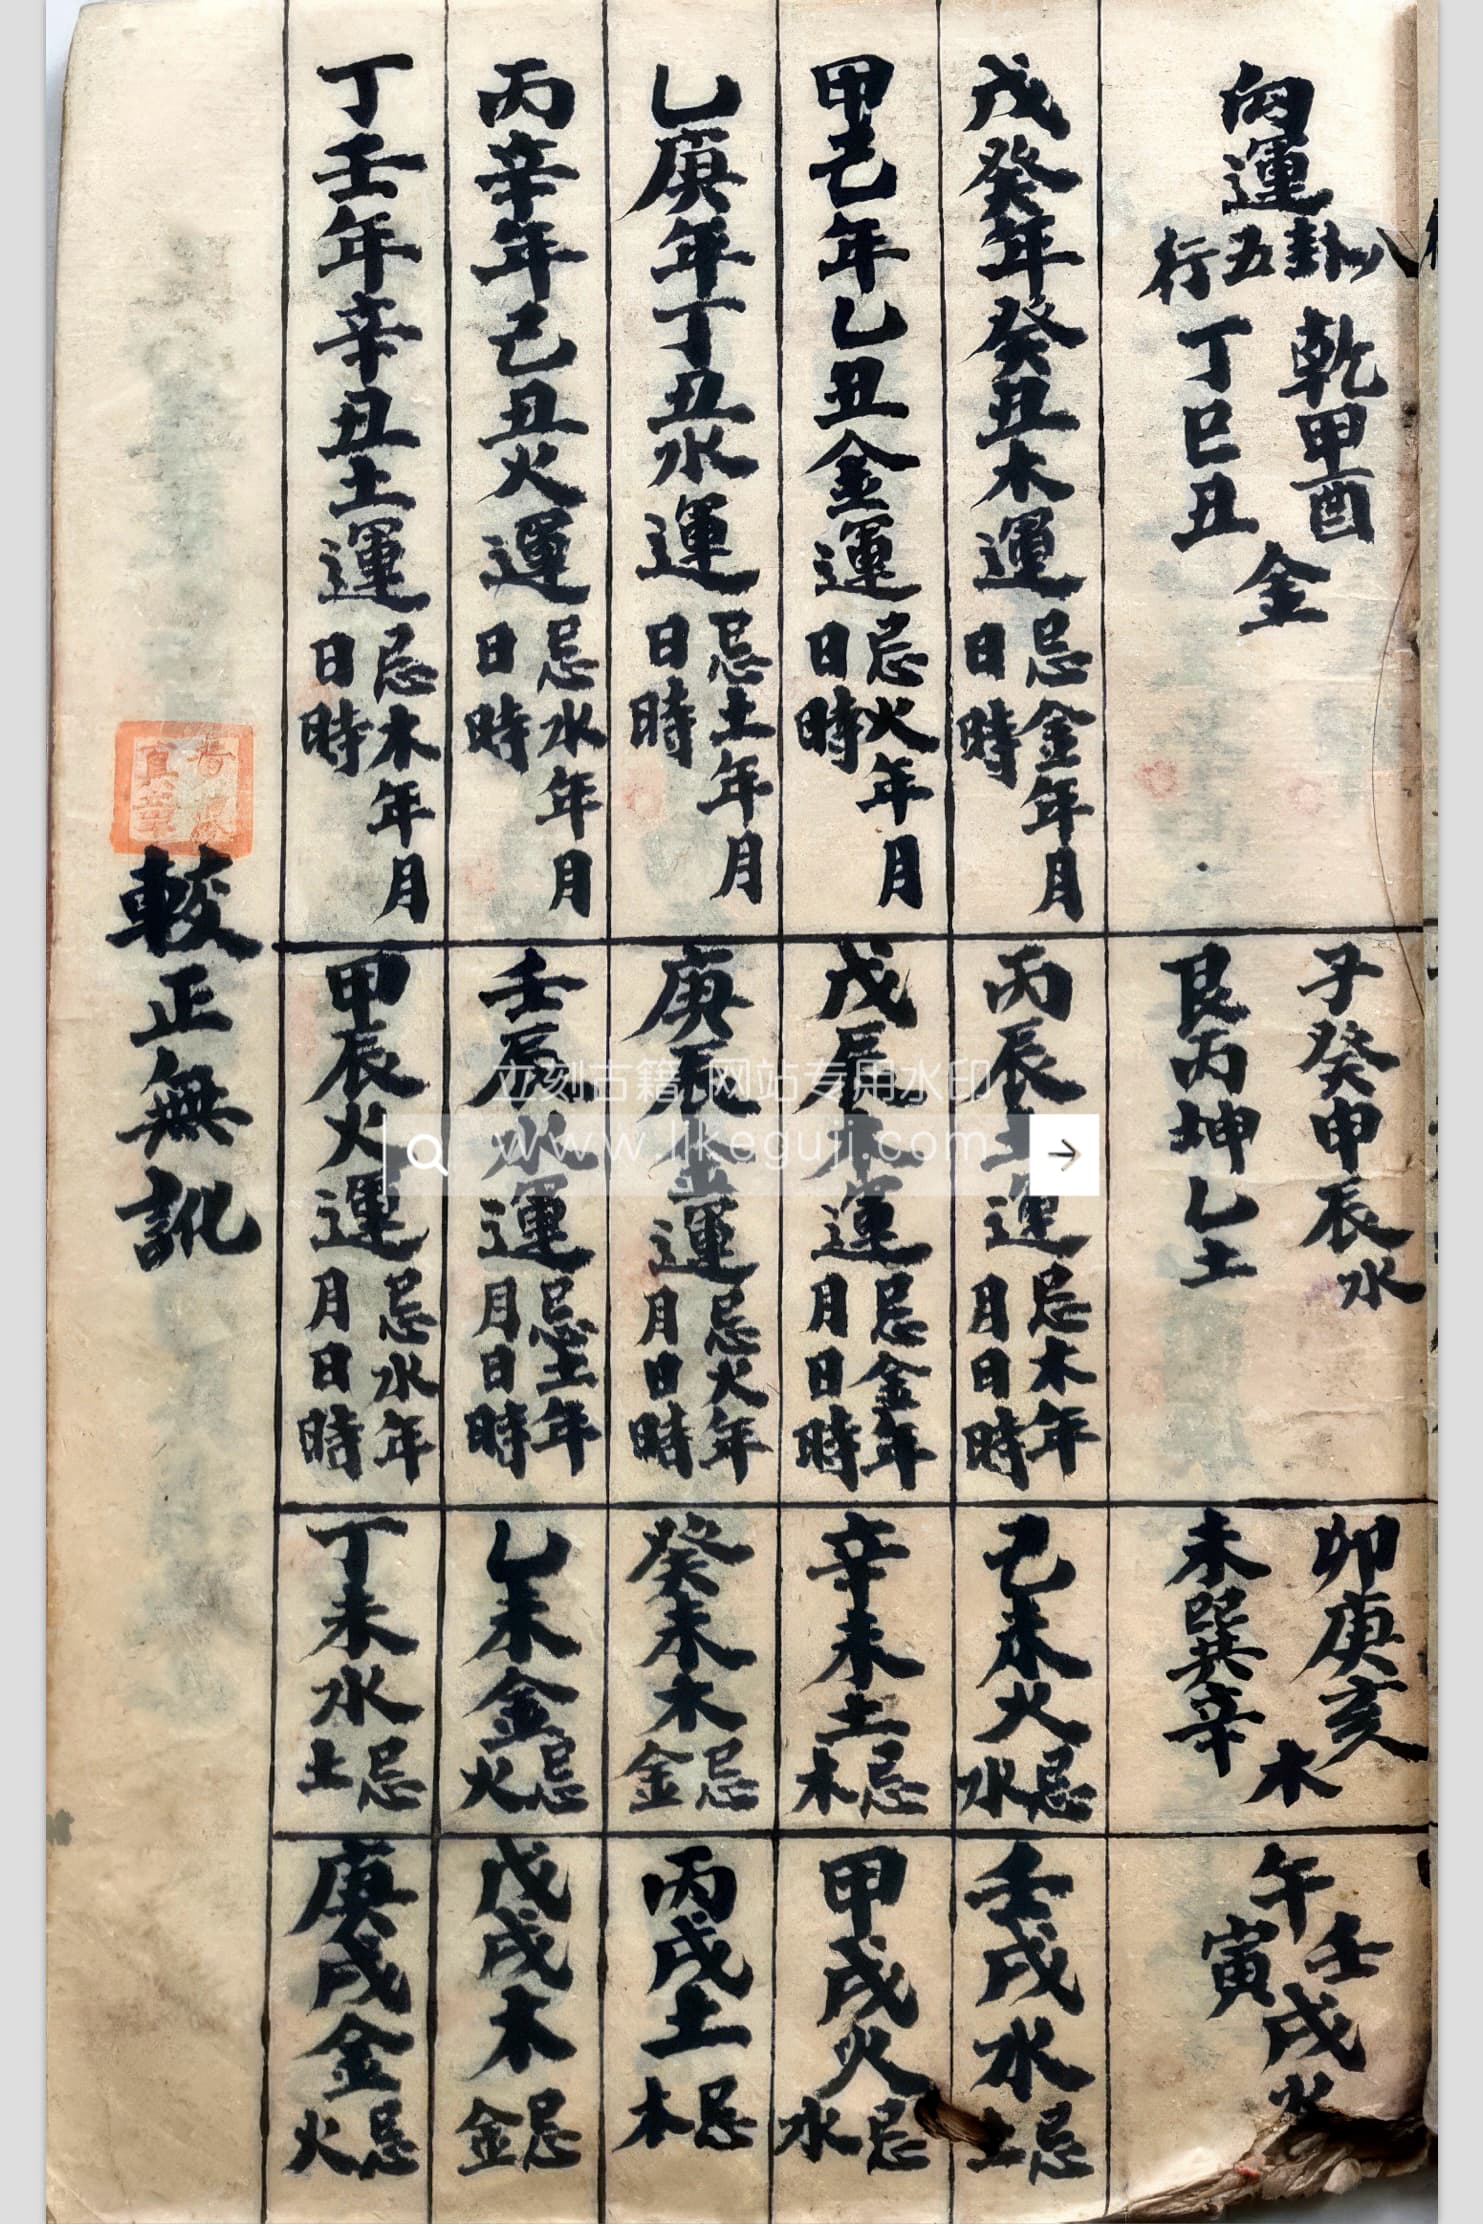 運卦五行
乾甲酉
丁巳丑
金
子癸申辰水
艮丙坤乙土
卯庚亥
未巽辛
木
午壬
寅戌
火
戊癸年癸丑木運忌金年月日時
丙辰土運忌木年月日時
己未火忌水
壬戌水忌土
甲己年乙丑金運忌火年月日時
戊辰木運忌金年月日時
辛未土忌木
甲戌火忌水
乙庚年丁丑水運忌土年月日時
庚辰金運忌火年月日時
癸未木忌金
丙戌土忌木
丙辛年己丑火運忌水年月日時
壬辰水運忌土年月日時
乙未金忌火
戊戌木忌金
丁壬年辛丑土運忌木年月日時
甲辰火運忌水年月日時
丁未水忌土
庚戌金忌火
較正無訛
立刻古籍 网站专用水印
www.likeguji.com